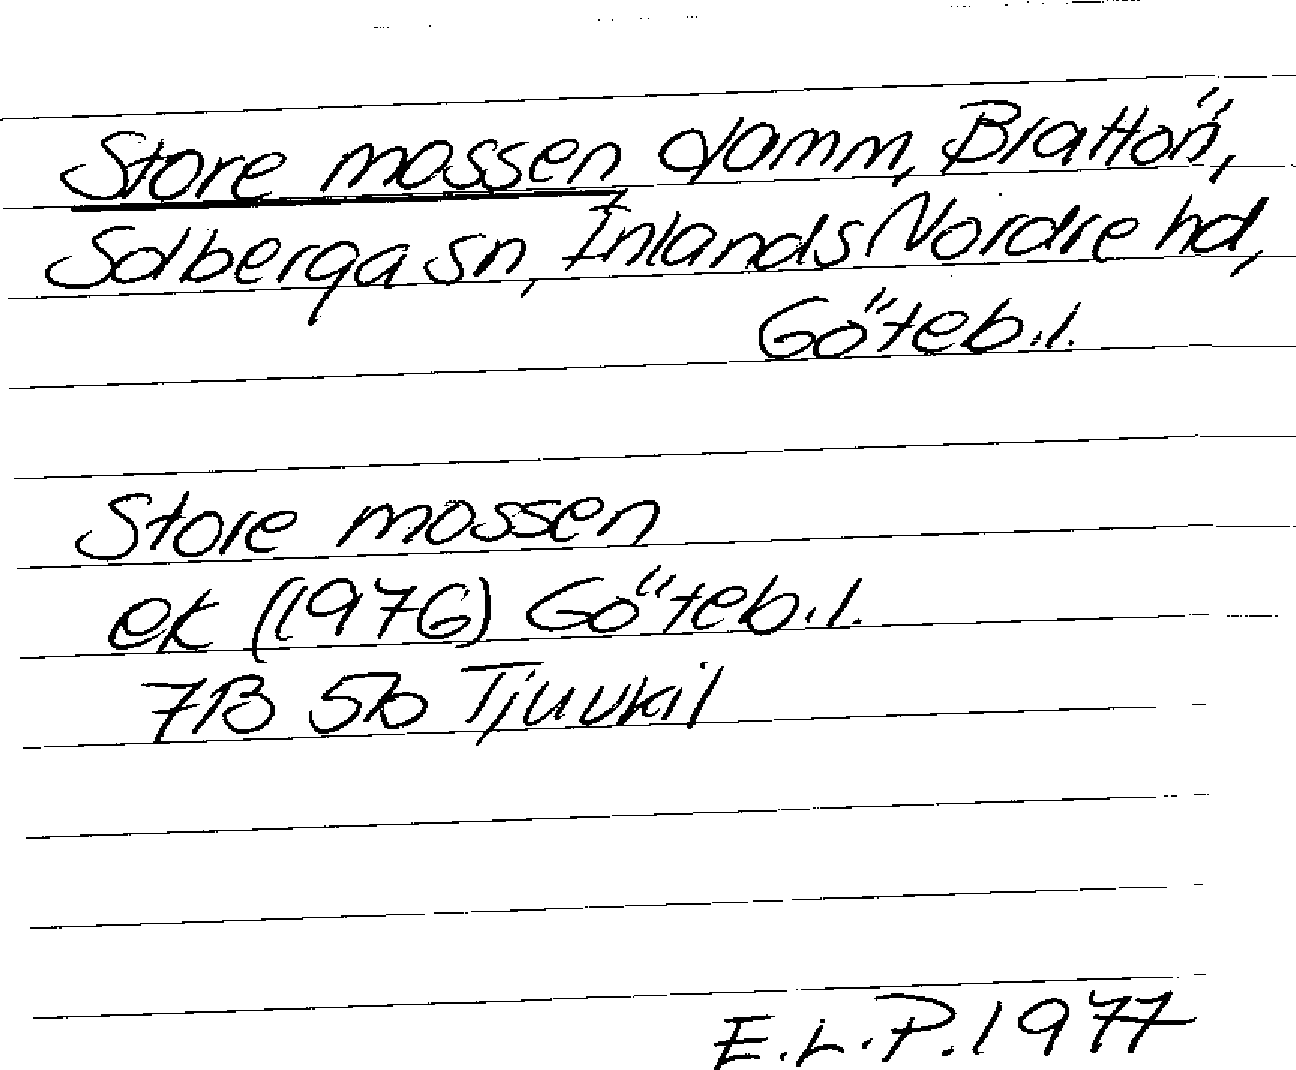 Store mossen damm, Brattön,
Solberga sn, Inlands Nordre hd,
Göteb.l.
Store mossen
ek (1976) Göteb.l.
7B 5b Tjuvkil
E.L.P. 1977